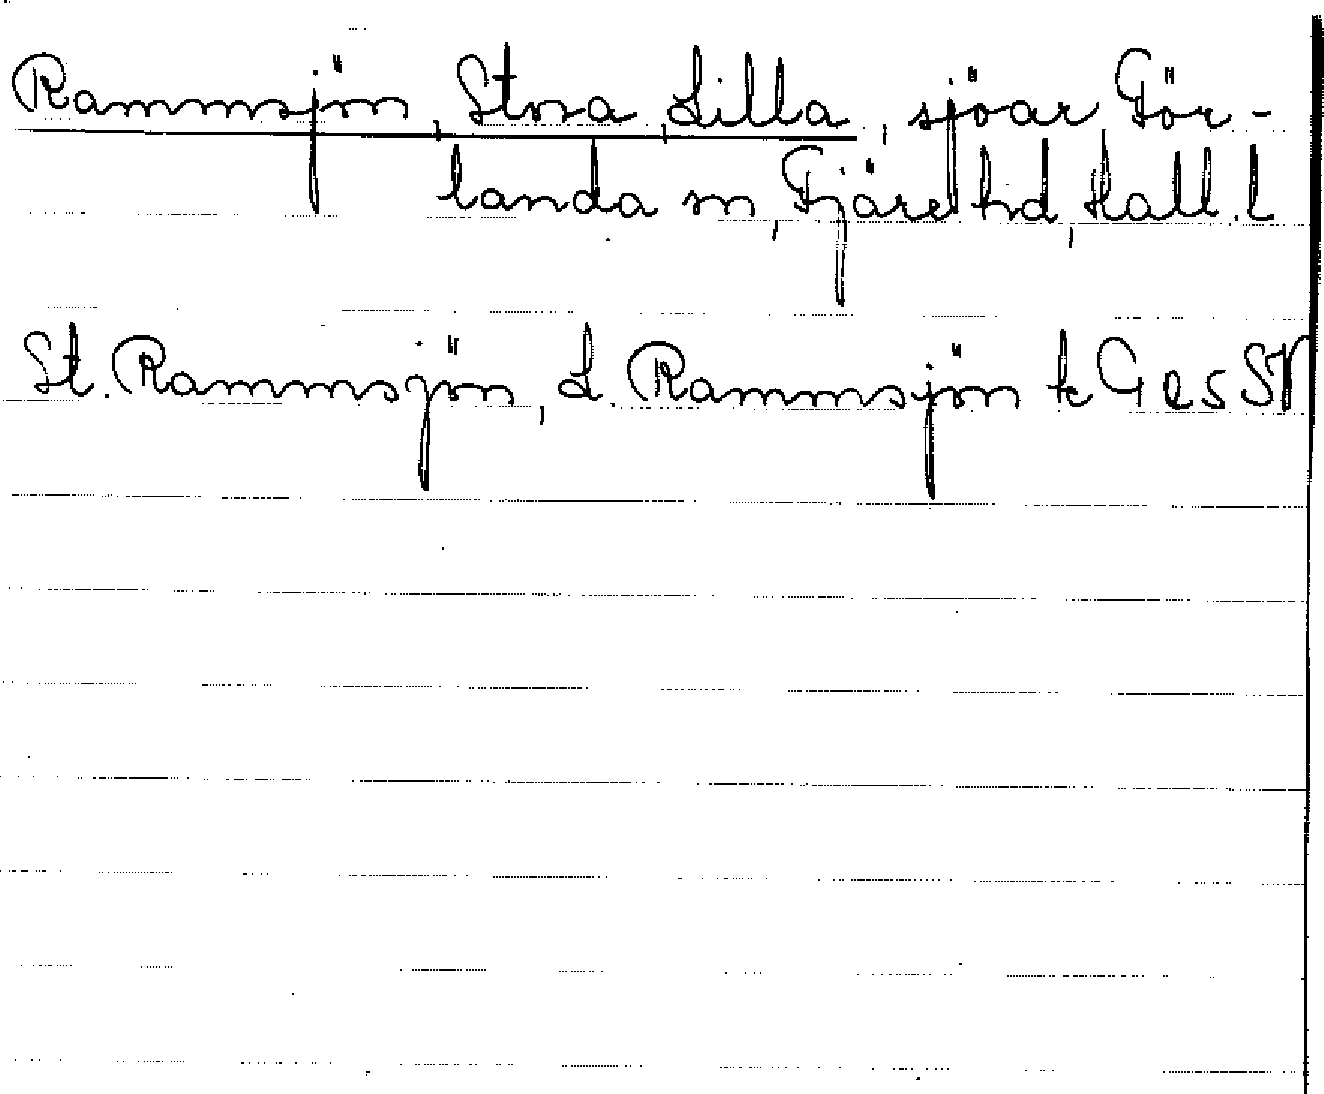 Rammsjön, Stora, Lilla, sjöar, För-
landa sn, Fjäre hd, Hall. l
St. Rammsjön, L. Rammsjön k G e s SV